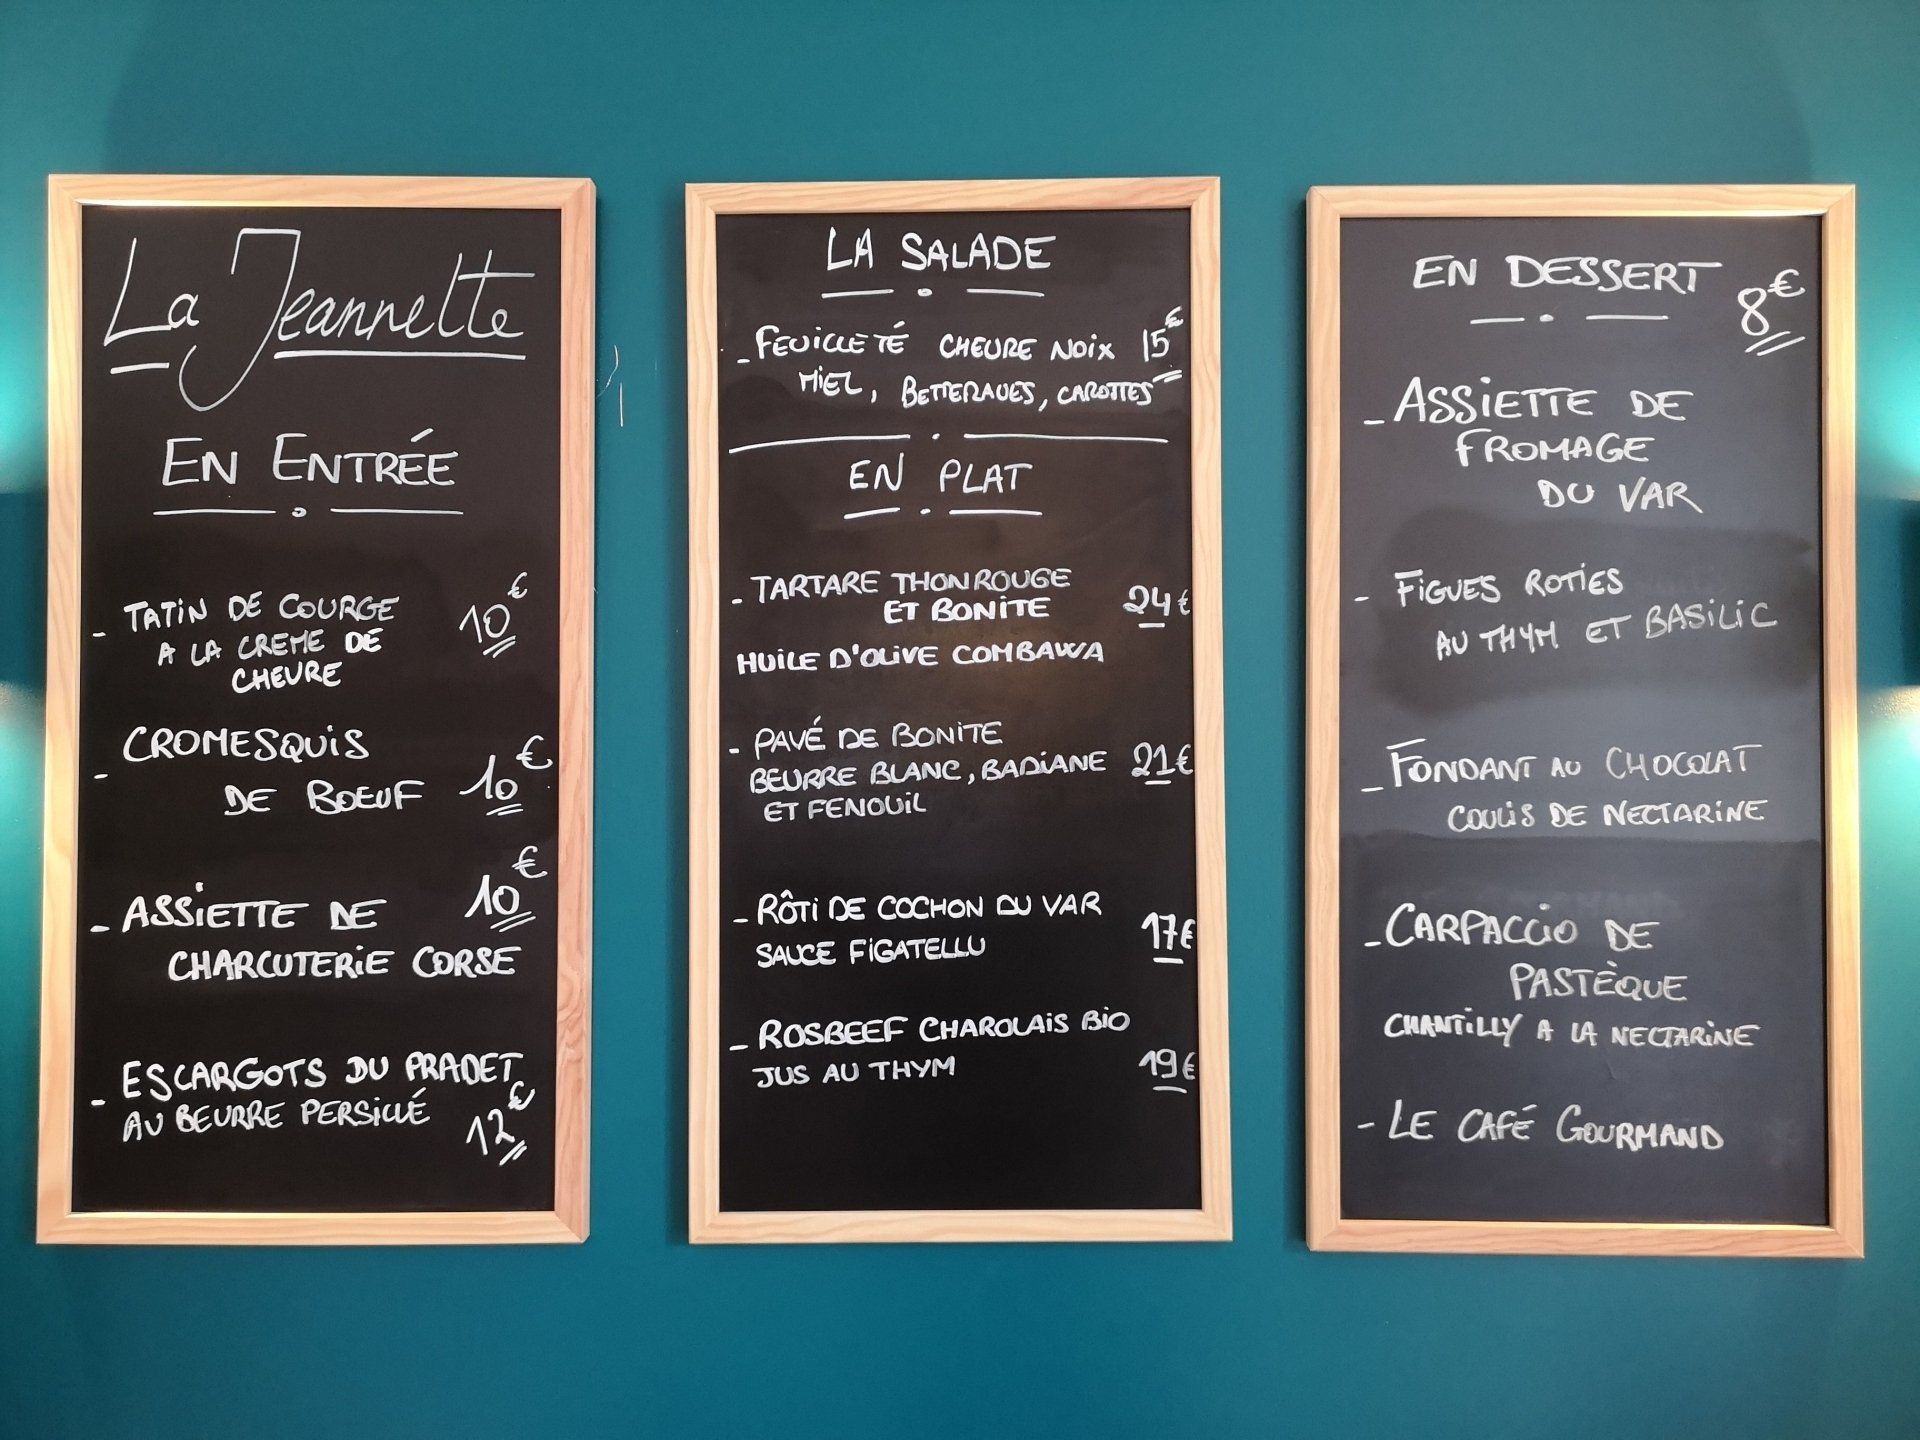 La Jeannette
EN ENTRÉE
- TATIN DE COURGE 10€
A LA CREME DE
CHEVRE
- CROMESQUIS
DE BOEUF 10€
- ASSIETTE DE 10€
CHARCUTERIE CORSE
- ESCARGOTS DU PRADET
AU BEURRE PERSILLÉ 12€
LA SALADE
- FEUILLETÉ CHEVRE NOIX 15€
MIEL, BETTERAVES, CAROTTES
EN PLAT
- TARTARE THON ROUGE
ET BONITE 24€
HUILE D'OLIVE COMBAWA
- PAVÉ DE BONITE
BEURRE BLANC, BADIANE 21€
ET FENOUIL
- RÔTI DE COCHON DU VAR
SAUCE FIGATELLU 17€
- ROSBEEF CHAROLAIS BIO
JUS AU THYM 19€
EN DESSERT 8€
- ASSIETTE DE
FROMAGE
DU VAR
- FIGUES ROTIES
AU THYM ET BASILIC
- FONDANT AU CHOCOLAT
COULIS DE NECTARINE
- CARPACCIO DE
PASTÈQUE
CHANTILLY A LA NECTARINE
- LE CAFÉ GOURMAND